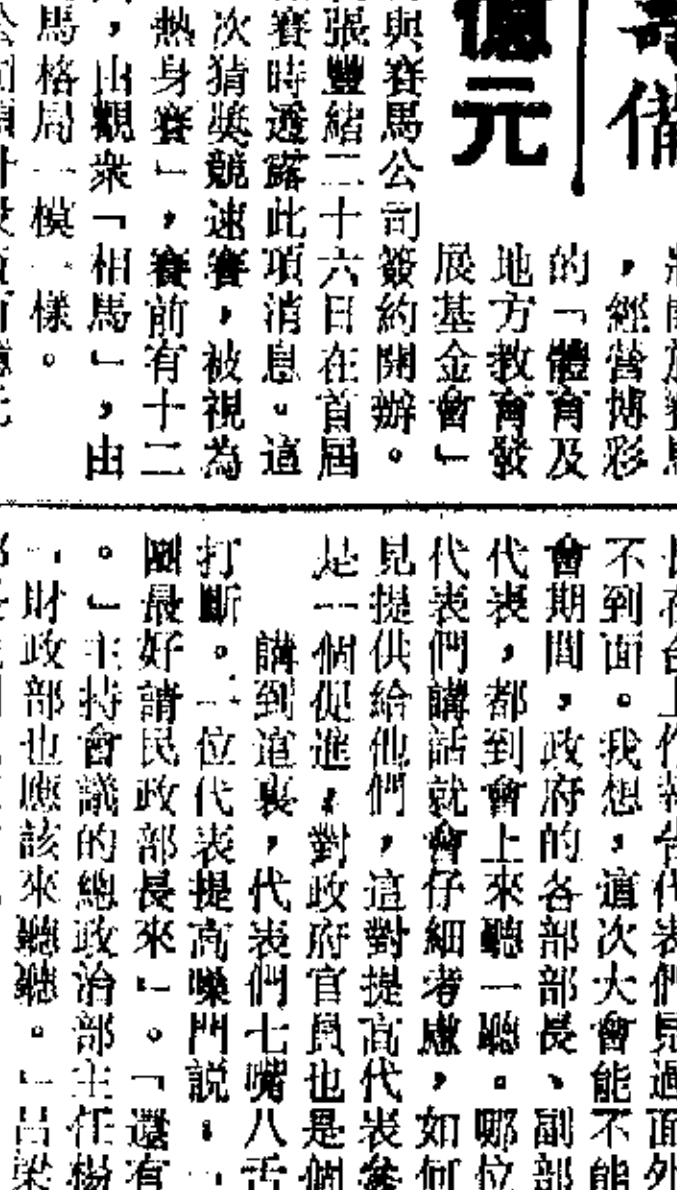 億元
籌備
，經營博彩
的「體育及
地方教育發
展基金會」
與賽馬公司簽約開辦。
張豐緒二十六日在首屆
賽時透露此項消息。這
次猜獎競速賽，被視為
熱身賽」，賽前有十二
，由觀衆「相馬」，由
馬格局一模一樣。
長在台上作報告代表們見過面外
不到面。我想，這次大會能不能
會期間，政府的各部部長、副部
代表，都到會上來聽一聽。哪位
代表們講話就會仔細考慮，如何
見提供給他們，這對提高代表參
是一個促進，對政府官員也是個
講到這裏，代表們七嘴八舌
打斷。一位代表提高嗓門説：「
剛最好請民政部長來」。「還有
。」主持會議的總政治部主任楊
「財政部也應該來聽聽。」呂梁